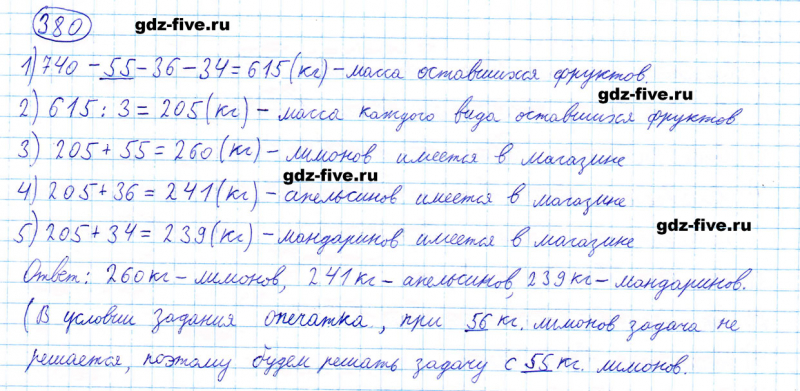 380 gdz-five.ru
1) 740 - 55 - 36 - 34 = 615 (кг) - масса оставшихся фруктов.
gdz-five.ru
2) 615 : 3 = 205 (кг) - масса каждого вида оставшихся фруктов
3) 205 + 55 = 260 (кг) - лимонов имеется в магазине
gdz-five.ru
4) 205 + 36 = 241 (кг) - апельсинов имеется в магазине
gdz-five.ru
5) 205 + 34 = 239 (кг) - мандаринов имеется в магазине
Ответ: 260 кг - лимонов, 241 кг - апельсинов, 239 кг - мандаринов.
(В условии задания опечатка, при 56 кг. лимонов задача не
решается, поэтому будем решать задачу с 55 кг. лимонов.